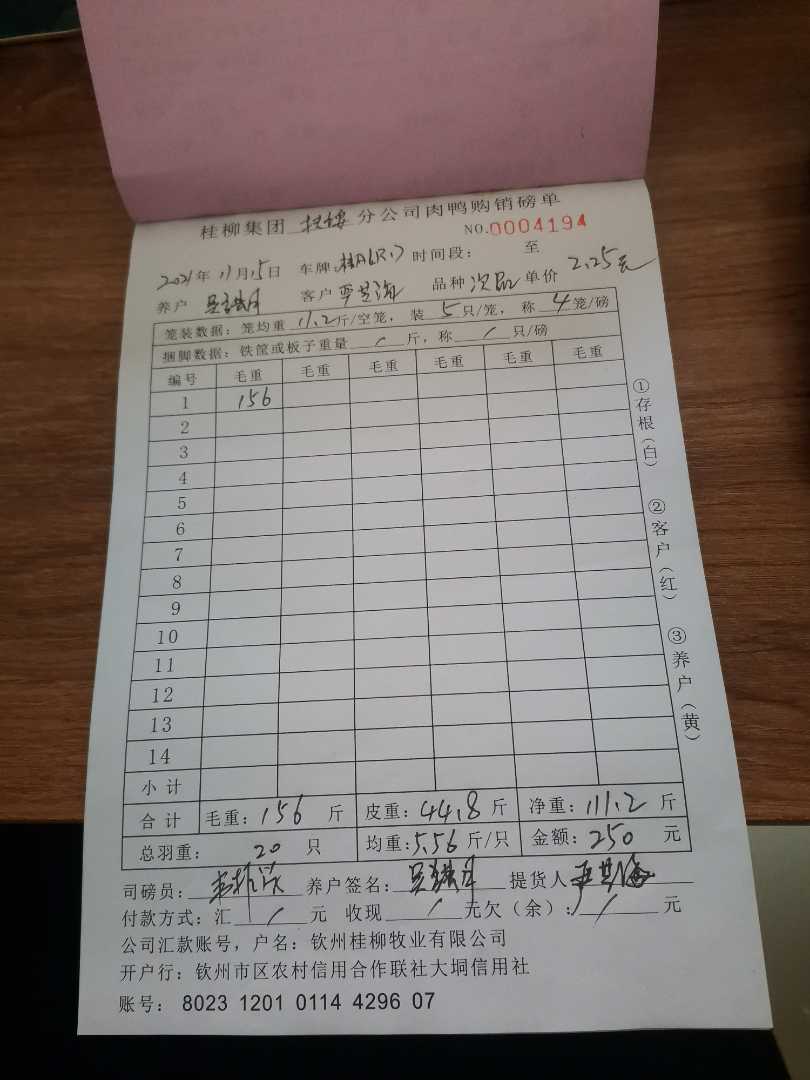 桂柳集团 分公司肉鸭购销磅单
NO.0004194
2021年11月15日 车牌: 时间段: 至
养户 客户 品种 次品 单价 2.25元
笼装数据: 笼均重 11.2 斤/空笼, 装 5 只/笼, 称 4 笼/磅
捆脚数据: 铁筐或板子重量 / 斤, 称 / 只/磅
编号 毛重 毛重 毛重 毛重 毛重 毛重
1 156
2
3
4
5
6
7
8
9
10
11
12
13
14
小计
合计 毛重: 156 斤 皮重: 44.8 斤 净重: 111.2 斤
总羽重: 20 只 均重: 5.56 斤/只 金额: 250 元
司磅员: 养户签名: 提货人
付款方式: 汇 / 元 收现 / 元欠(余): / 元
公司汇款账号, 户名: 钦州桂柳牧业有限公司
开户行: 钦州市区农村信用合作联社大垌信用社
账号: 8023 1201 0114 4296 07
①存根(白) ②客户(红) ③养户(黄)